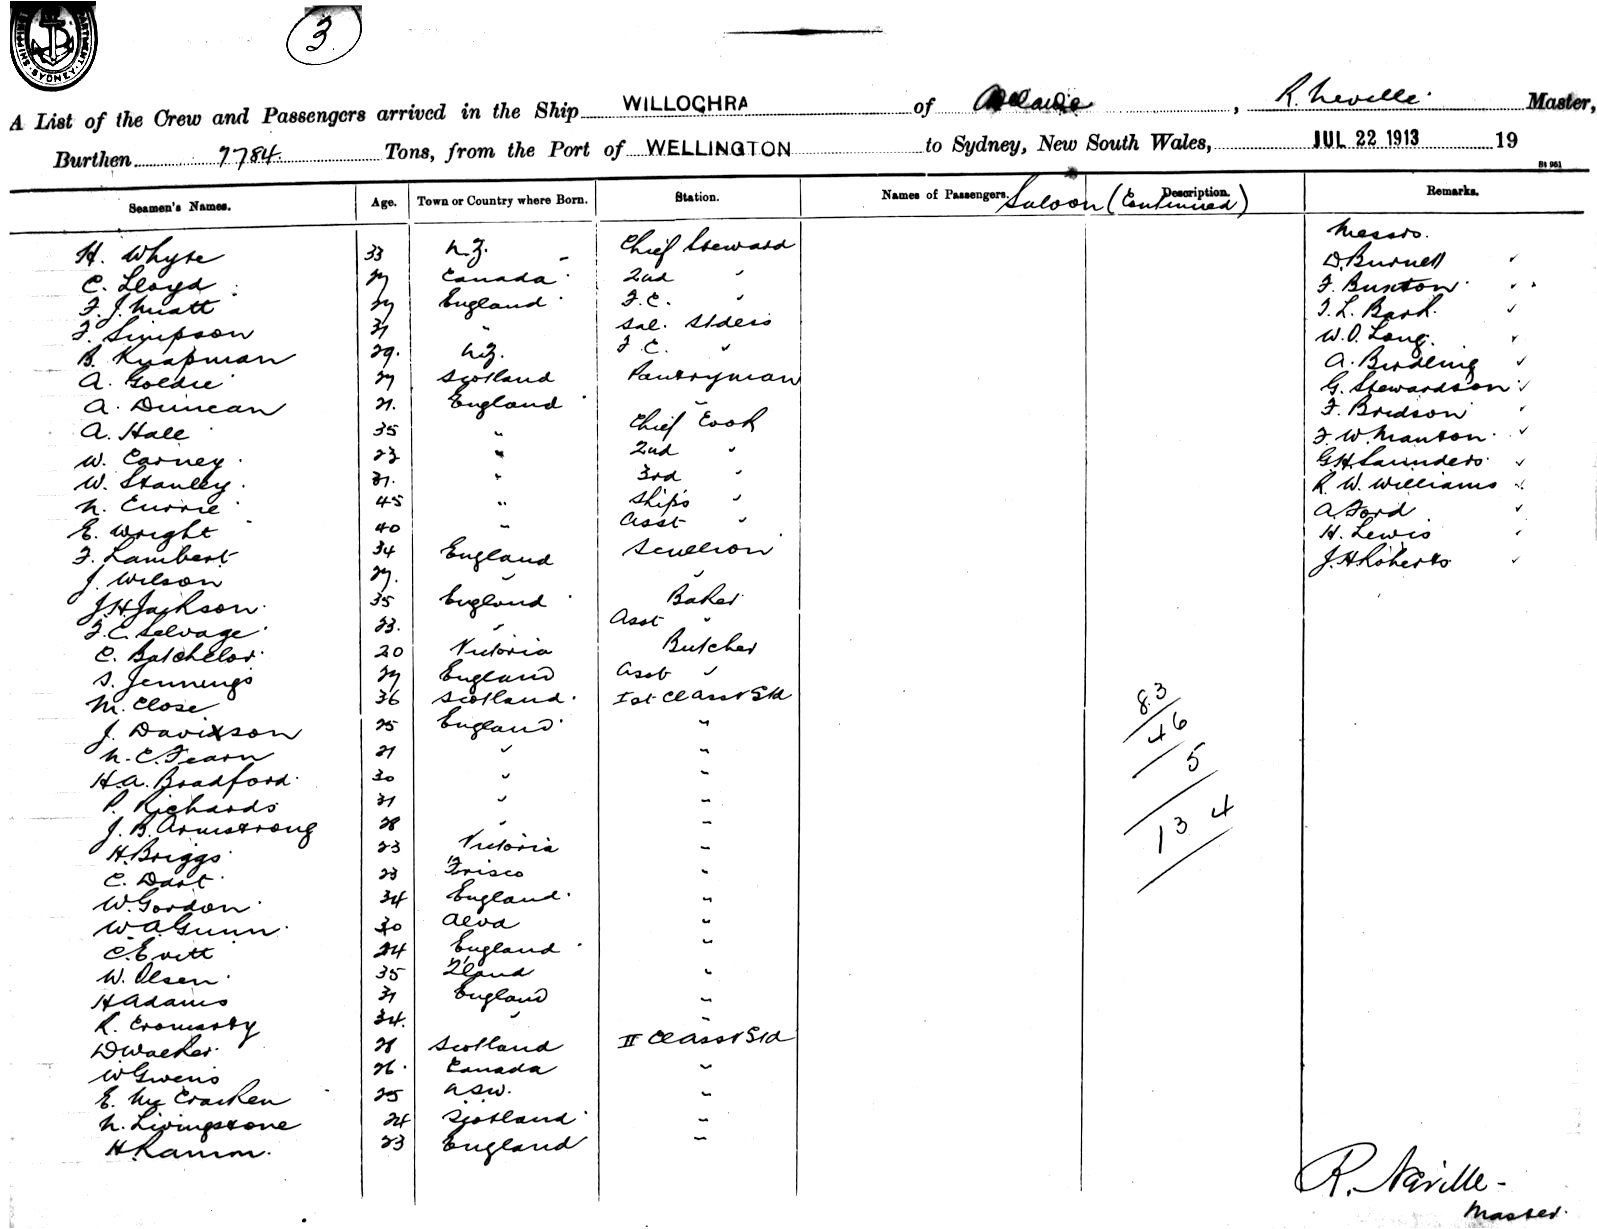 SHIPPING DEPARTMENT. SYDNEY
3
A List of the Crew and Passengers arrived in the Ship WILLOCHRA of Adelaide, R. Neville Master,
Burthen 7784 Tons, from the Port of WELLINGTON to Sydney, New South Wales, JUL 22 1913 19
St 961
Seamen's Names. Age. Town or Country where Born. Station. Names of Passengers. Description. Remarks.
Saloon (Continued)
Messrs.
H. Whyte 33 N.Z. Chief Steward D. Burnell
C. Lloyd 27 Canada 2nd " F. Buxton
F. J. Miatt 27 England F.C. " T. L. Bark.
F. Simpson 31 " Sal. Stders W. O. Long.
B. Knapman 29. N.Z. F.C. " A. Birdling
A. Goldie 27 Scotland Pantryman G. Stewardson
A. Duncan 21. England " F. Bridson
A. Hall 35 " Chief Cook F. W. Manton.
W. Carney. 23 " 2nd " G H Saunders
W. Stanley. 31. " 3rd " R. W. Williams
N. Currie 45 " Ships " A Ford
E. Wright 40 " Asst " H. Lewis
F. Lambert 34 England Scullion J. H Roberts
J. Wilson 27. " "
J. H. Jackson. 35 England Baker
F. C. Selvage 23. " Asst "
C. Batchelor. 20 Victoria Butcher
S. Jennings 27 England Asst "
M. Close 36 Scotland. 1st Class Std
J. Davison 25 England "
N. C. Fearn 21 " "
H. A. Bradford. 30 " "
P. Richards 31 " "
J. B. Armstrong 28 " "
H. Briggs 23 Victoria "
C. Dart. 23 Frisco "
W. Gordon. 34 England. "
W. A. Gunn. 30 Alva "
C. Evitt 24 England "
W. Olsen. 35 "
H Adams 31 England "
R. Cromarty 34. " "
D Walker. 28 Scotland II Class Std
W Gwens 26. Canada "
E. McCracken 25 NSW. "
N. Livingstone 24 Scotland "
H Ramm. 23 England "
83
46
5
134
R. Neville
Master.